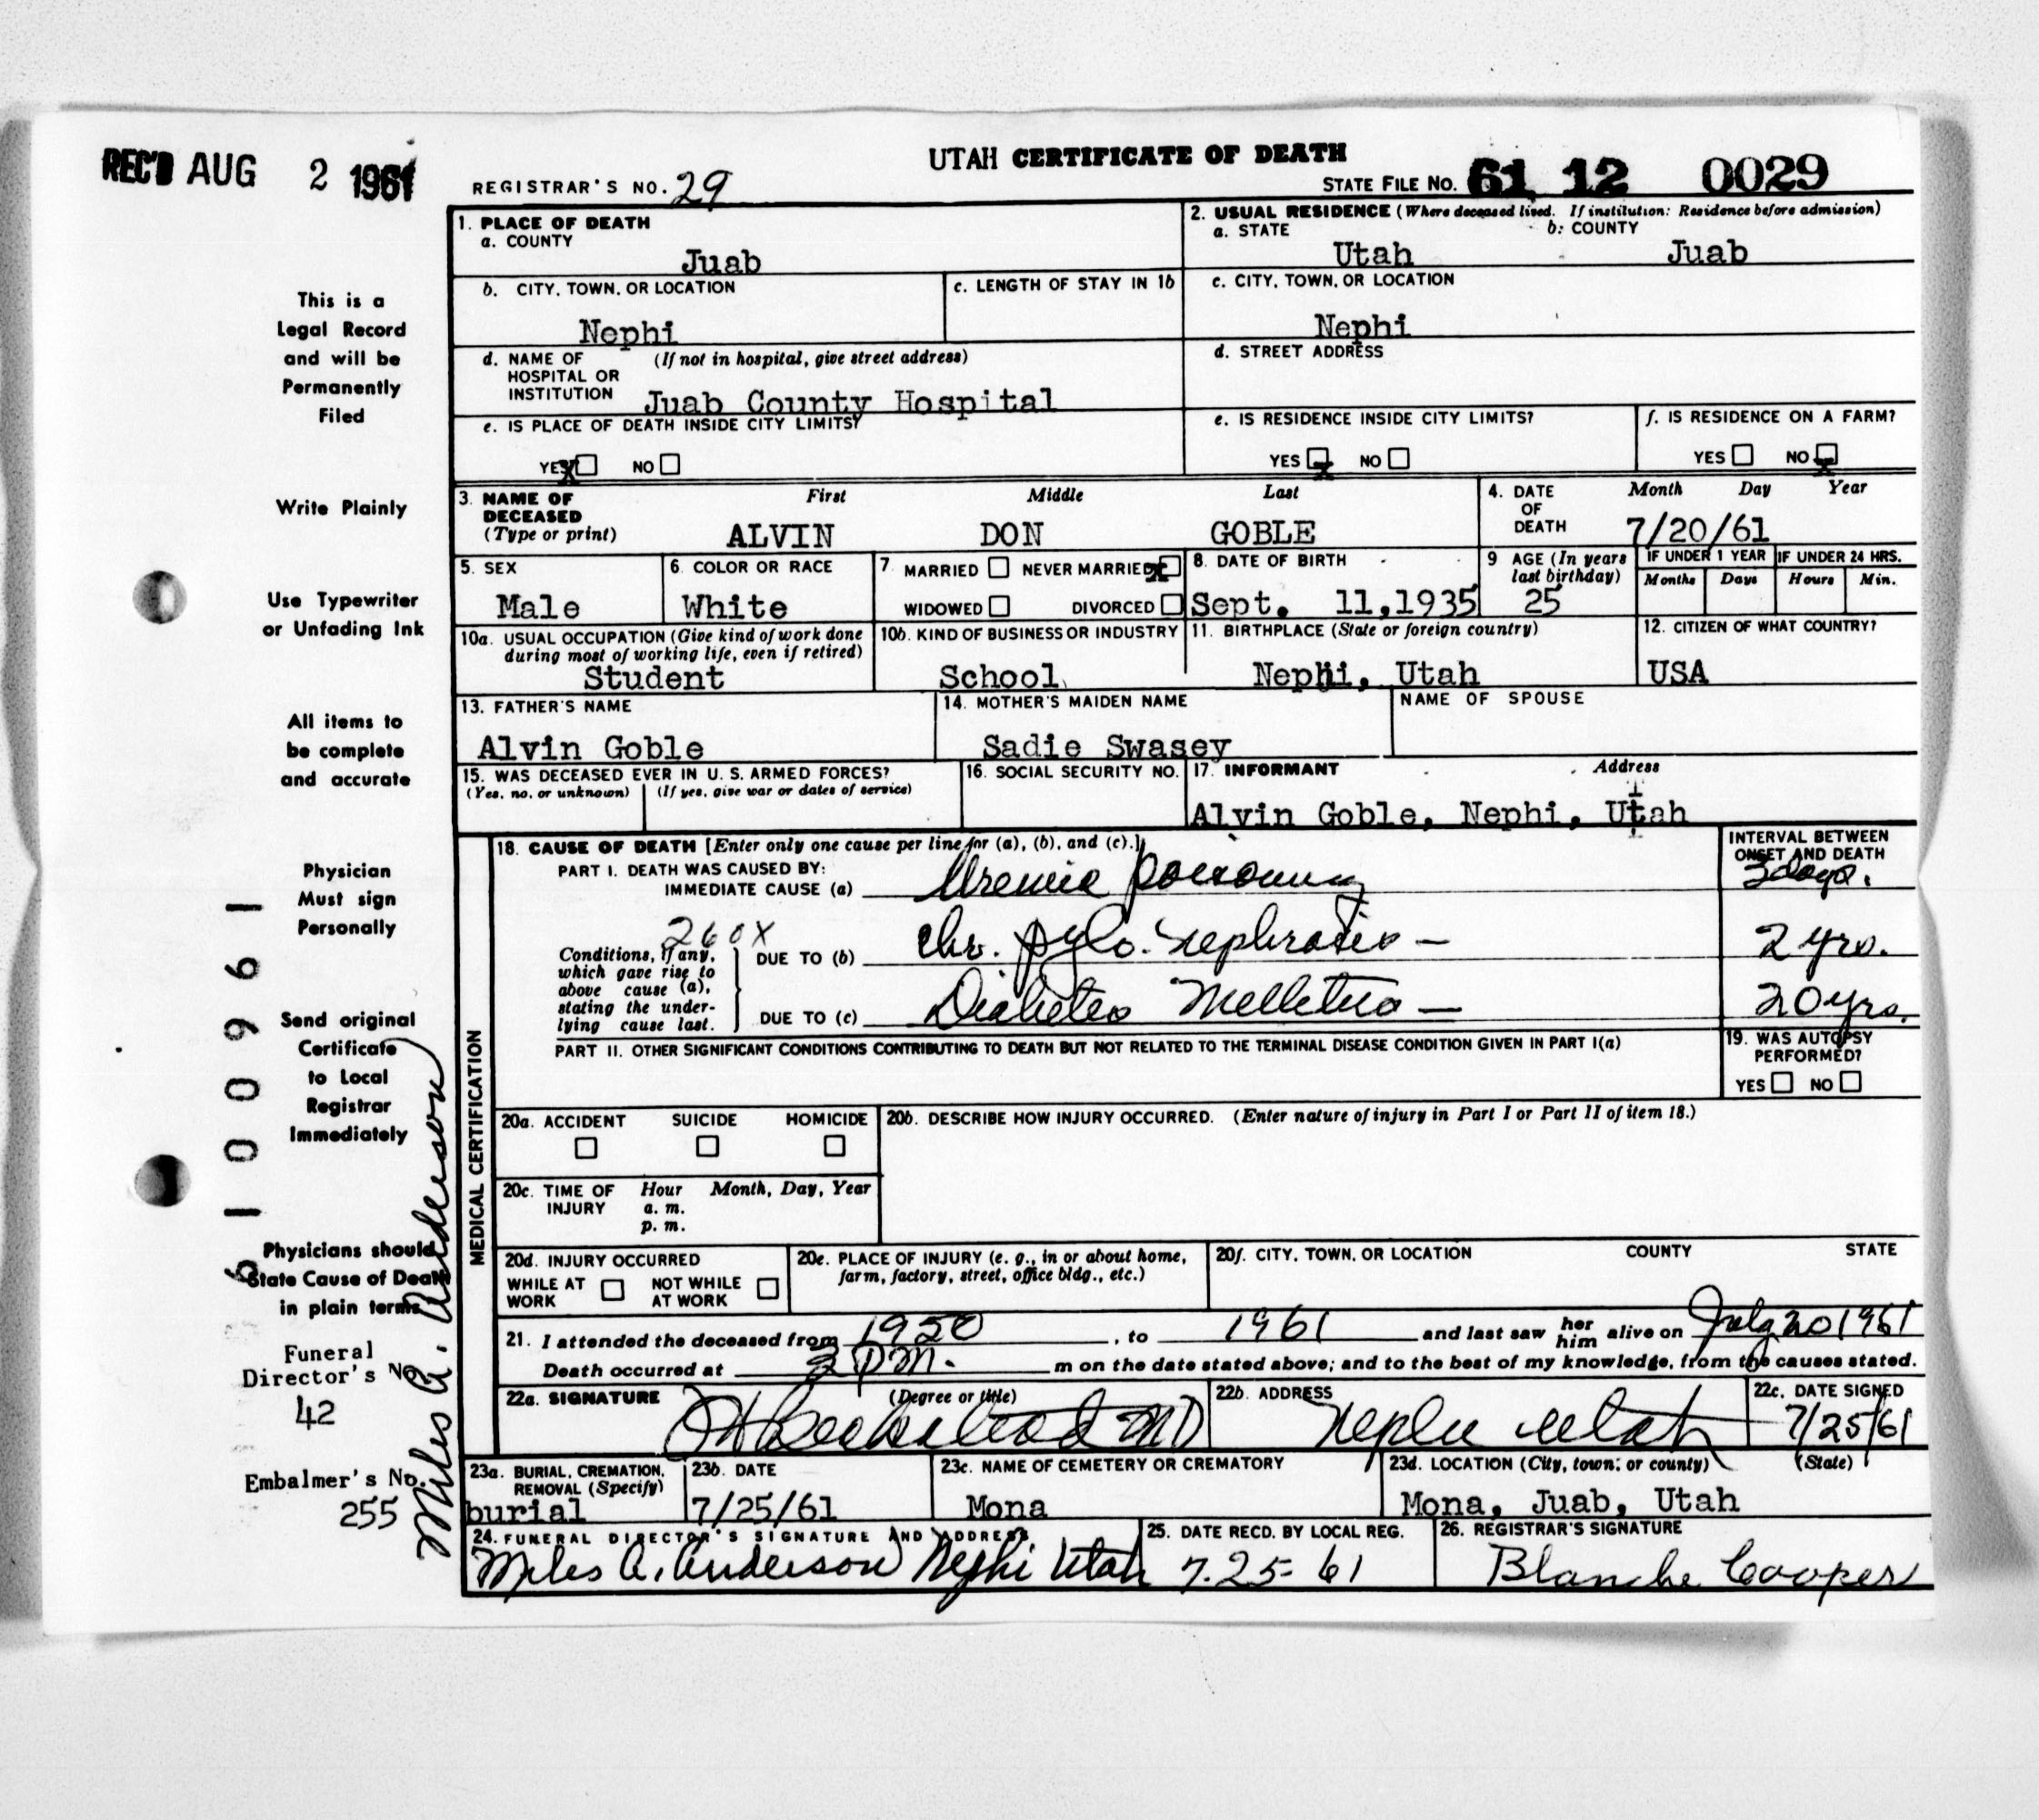 REC'D AUG 2 1961
UTAH CERTIFICATE OF DEATH
REGISTRAR'S NO. 29
STATE FILE NO. 61 12 0029
This is a
Legal Record
and will be
Permanently
Filed
Write Plainly
Use Typewriter
or Unfading Ink
All items to
be complete
and accurate
Physician
Must sign
Personally
Send original
Certificate
to Local
Registrar
Immediately
Physicians should
State Cause of Death
in plain terms
Funeral
Director's No.
42
Embalmer's No.
255
Miles A. Anderson
1. PLACE OF DEATH
a. COUNTY
Juab
2. USUAL RESIDENCE (Where deceased lived. If institution: Residence before admission)
a. STATE b: COUNTY
Utah Juab
b. CITY, TOWN, OR LOCATION
Nephi
c. LENGTH OF STAY IN 1b
c. CITY, TOWN, OR LOCATION
Nephi
d. NAME OF (If not in hospital, give street address)
HOSPITAL OR
INSTITUTION Juab County Hospital
d. STREET ADDRESS
e. IS PLACE OF DEATH INSIDE CITY LIMITS?
YES X NO
e. IS RESIDENCE INSIDE CITY LIMITS?
YES X NO
f. IS RESIDENCE ON A FARM?
YES NO X
3. NAME OF DECEASED (Type or print)
First Middle Last
ALVIN DON GOBLE
4. DATE OF DEATH
Month Day Year
7/20/61
5. SEX
Male
6. COLOR OR RACE
White
7. MARRIED NEVER MARRIED X
WIDOWED DIVORCED
8. DATE OF BIRTH
Sept. 11,1935
9 AGE (In years last birthday)
25
IF UNDER 1 YEAR
Months Days
IF UNDER 24 HRS.
Hours Min.
10a. USUAL OCCUPATION (Give kind of work done
during most of working life, even if retired)
Student
10b. KIND OF BUSINESS OR INDUSTRY
School
11. BIRTHPLACE (State or foreign country)
Nephi, Utah
12. CITIZEN OF WHAT COUNTRY?
USA
13. FATHER'S NAME
Alvin Goble
14. MOTHER'S MAIDEN NAME
Sadie Swasey
NAME OF SPOUSE
15. WAS DECEASED EVER IN U. S. ARMED FORCES?
(Yes, no, or unknown) (If yes, give war or dates of service)
16. SOCIAL SECURITY NO.
17. INFORMANT Address
Alvin Goble, Nephi, Utah
MEDICAL CERTIFICATION
18. CAUSE OF DEATH [Enter only one cause per line for (a), (b), and (c).]
PART I. DEATH WAS CAUSED BY:
IMMEDIATE CAUSE (a) Uremic poisoning
INTERVAL BETWEEN
ONSET AND DEATH
3 days.
260X
Conditions, if any,
which gave rise to
above cause (a),
stating the under-
lying cause last.
DUE TO (b) Chr. pylo. nephrosis - 2 yrs.
DUE TO (c) Diabetes Melletus - 20 yrs.
PART II. OTHER SIGNIFICANT CONDITIONS CONTRIBUTING TO DEATH BUT NOT RELATED TO THE TERMINAL DISEASE CONDITION GIVEN IN PART I(a)
19. WAS AUTOPSY
PERFORMED?
YES NO
20a. ACCIDENT SUICIDE HOMICIDE
20b. DESCRIBE HOW INJURY OCCURRED. (Enter nature of injury in Part I or Part II of item 18.)
20c. TIME OF INJURY
Hour Month, Day, Year
a. m.
p. m.
20d. INJURY OCCURRED
WHILE AT WORK NOT WHILE AT WORK
20e. PLACE OF INJURY (e. g., in or about home,
farm, factory, street, office bldg., etc.)
20f. CITY, TOWN, OR LOCATION COUNTY STATE
21. I attended the deceased from 1950, to 1961 and last saw her him alive on July 20 1961
Death occurred at 3 P.M. m on the date stated above; and to the best of my knowledge, from the causes stated.
22a. SIGNATURE (Degree or title)
MD
22b. ADDRESS
Nephi Utah
22c. DATE SIGNED
7/25/61
23a. BURIAL, CREMATION,
REMOVAL (Specify)
burial
23b. DATE
7/25/61
23c. NAME OF CEMETERY OR CREMATORY
Mona
23d. LOCATION (City, town, or county) (State)
Mona, Juab, Utah
24. FUNERAL DIRECTOR'S SIGNATURE AND ADDRESS
Miles A. Anderson Nephi Utah
25. DATE RECD. BY LOCAL REG.
7-25-61
26. REGISTRAR'S SIGNATURE
Blanche Cooper